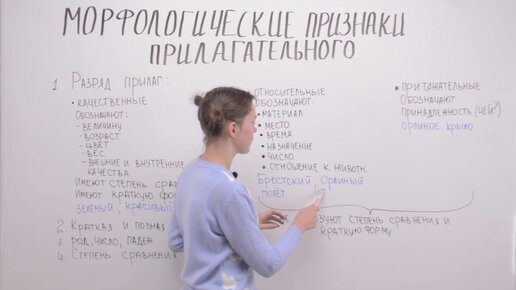 МОРФОЛОГИЧЕСКИЕ ПРИЗНАКИ
ПРИЛАГАТЕЛЬНОГО
1 Разряд прилаг:
• КАЧЕСТВЕННЫЕ
Обозначают:
- ВЕЛИЧИНУ
- ВОЗРАСТ
- ЦВЕТ
- ВЕС
- ВНЕШНИЕ И ВНУТРЕННИЕ
КАЧЕСТВА
ИМЕЮТ СТЕПЕНЬ СРА
ИМЕЮТ КРАТКУЮ ФО
ЗЕЛЕНЫЙ, КРАСИВЫ
2. КРАТКАЯ И ПОЛНАЯ
3 РОД, ЧИСЛО, ПАДЕЖ
4 СТЕПЕНЬ СРАВНЕНИЯ
ОТНОСИТЕЛЬНЫЕ
ОБОЗНАЧАЮТ
• МАТЕРИАЛ
• МЕСТО
• ВРЕМЯ
• НАЗНАЧЕНИЕ
• ЧИСЛО
• ОТНОШЕНИЕ К ЖИВОТН.
БРЕСТСКИЙ ОРЛИНЫЙ
ПОЛЕТ
• ПРИТЯЖАТЕЛЬНЫЕ
ОБОЗНАЧАЮТ
ПРИНАДЛЕЖНОСТЬ (ЧЕЙ?)
ОРЛИНОЕ КРЫЛО
НЕ ЗУЮТ СТЕПЕНЬ СРАВНЕНИЯ И
КРАТКУЮ ФОРМУ